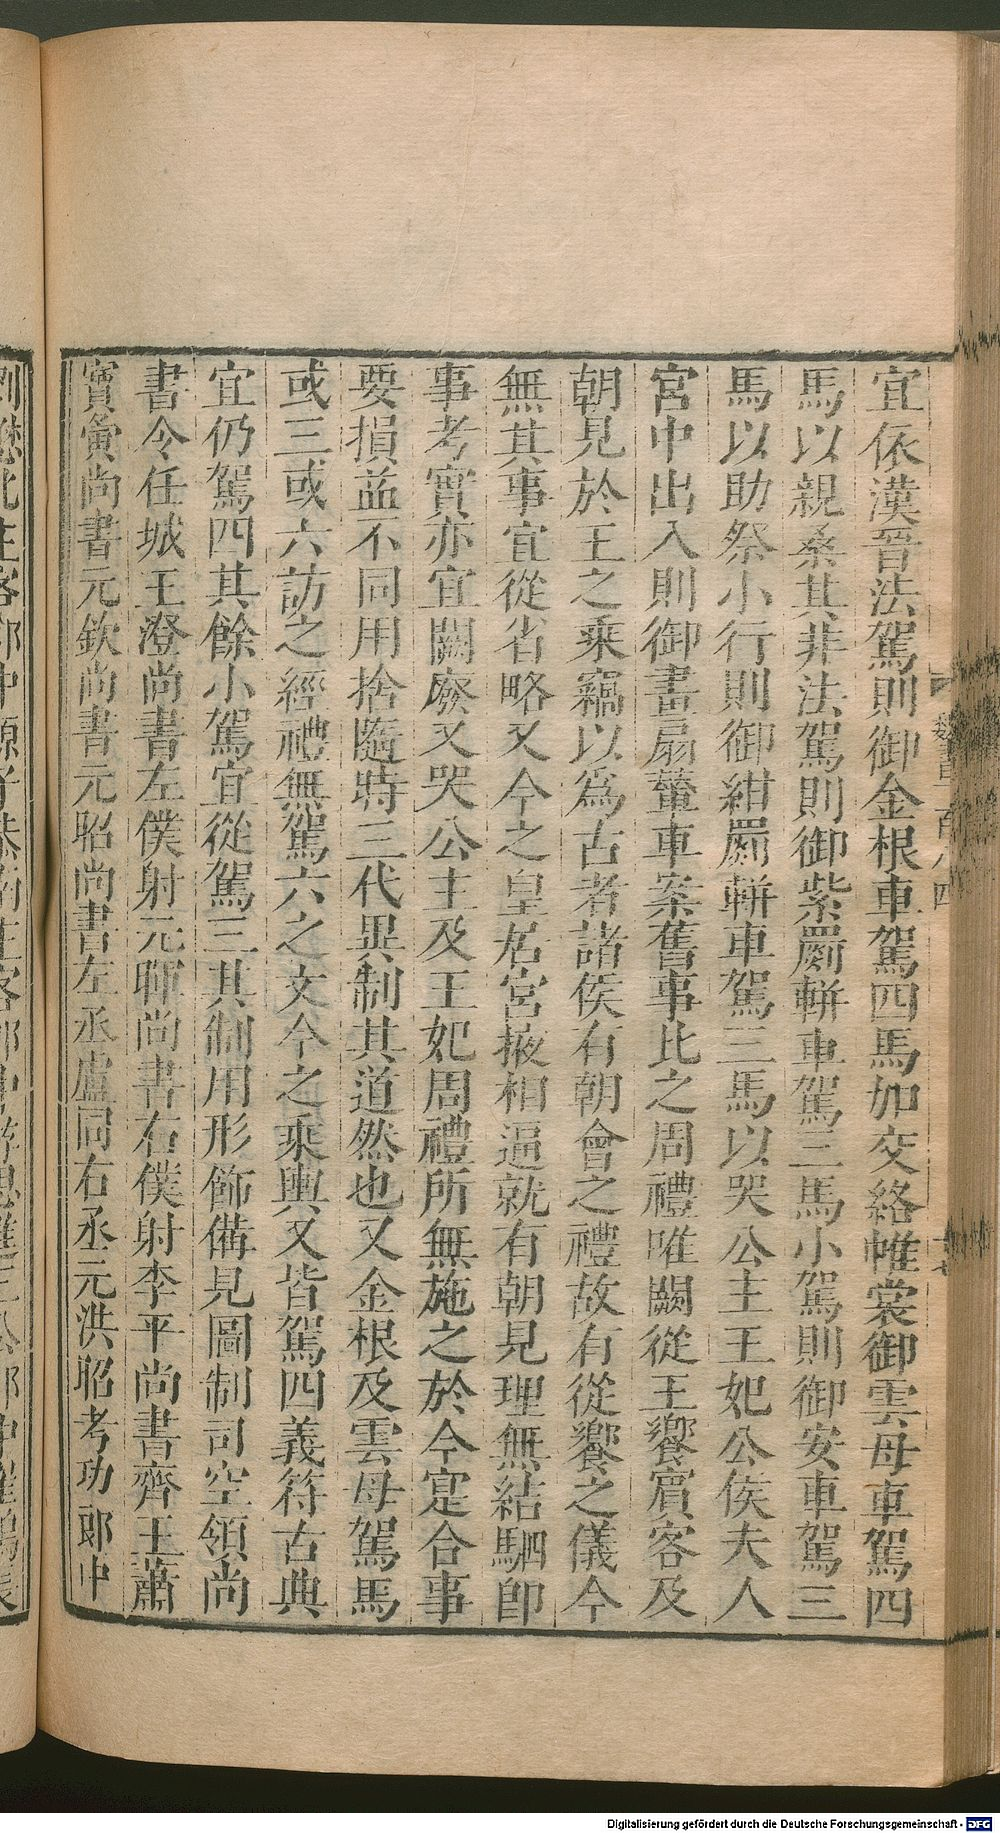 魏書一百八四
宜依漢晉法駕則御金根車駕四馬加交絡帷裳御雲母車駕四
馬以親桑其非法駕則御紫罽輧車駕三馬小駕則御安車駕三
馬以助祭小行則御紺罽輧車駕三馬以哭公主王妃公侯夫人
宮中出入則御畫扇輦車案舊事比之周禮唯闕從王饗賓客及
朝見於王之乘竊以爲古者諸侯有朝會之禮故有從饗之儀今
無其事宜從省略又今之皇居宮掖相逼就有朝見理無結駟即
事考實亦宜闕廢又哭公主及王妃周禮所無施之於今寔合事
要損益不同用捨隨時三代異制其道然也又金根及雲母駕馬
或三或六訪之經禮無駕六之文今之乘輿又皆駕四義符古典
宜仍駕四其餘小駕宜從駕三其制用形飾備見圖制司空領尚
書令任城王澄尚書左僕射元暉尚書右僕射李平尚書齊王蕭
寶夤尚書元欽尚書元昭尚書左丞盧同右丞元洪昭考功郎中
劉懋北主客郎中源子恭南主客郎中游思進三公郎中崔鴻長
Digitalisierung gefördert durch die Deutsche Forschungsgemeinschaft - DFG